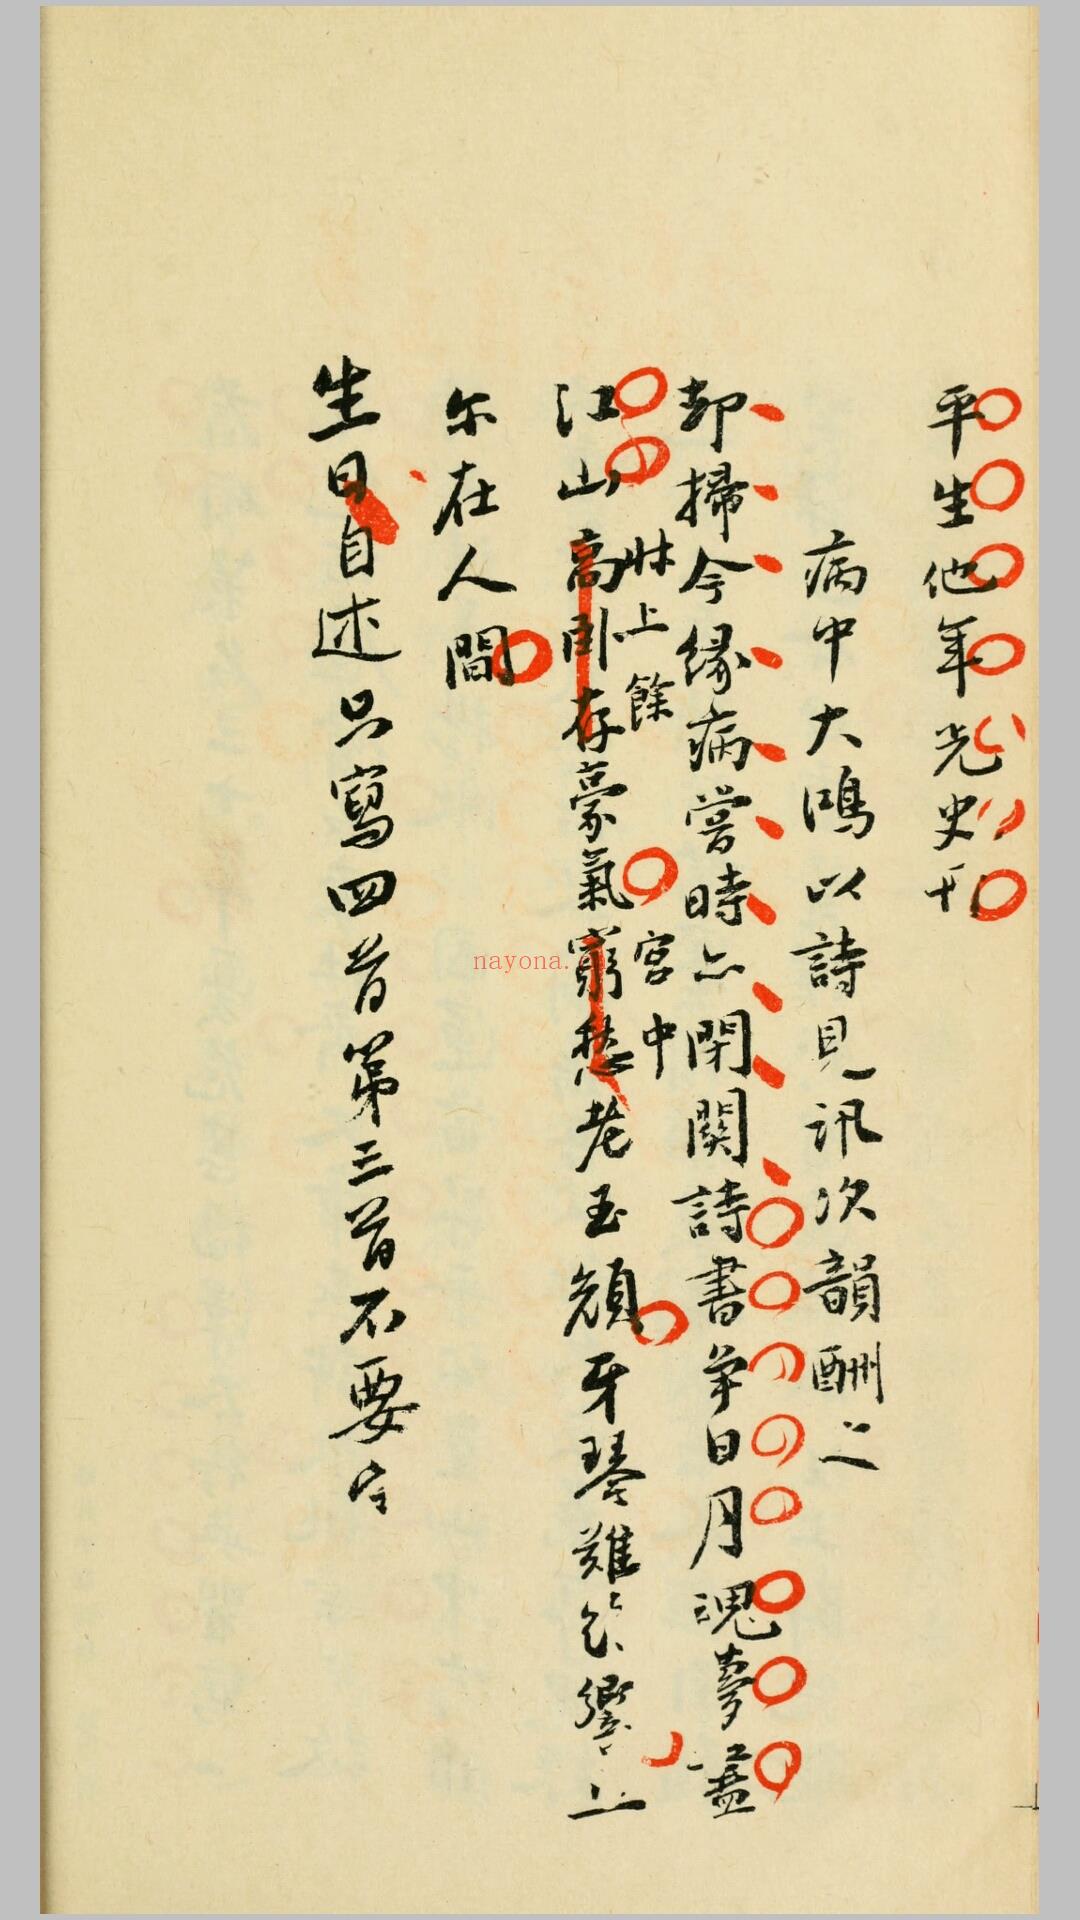 平生他年光史刊
病中大鴻以詩見訊次韻酬之
却掃今緣病嘗時亦閉關詩書爭日月魂夢盡
江山高卧存豪氣窮愁老玉顏牙琴難𫢉響上
牀上餘
宮中
尔在人間
生日自述只寫四首第三首不要
nayona.